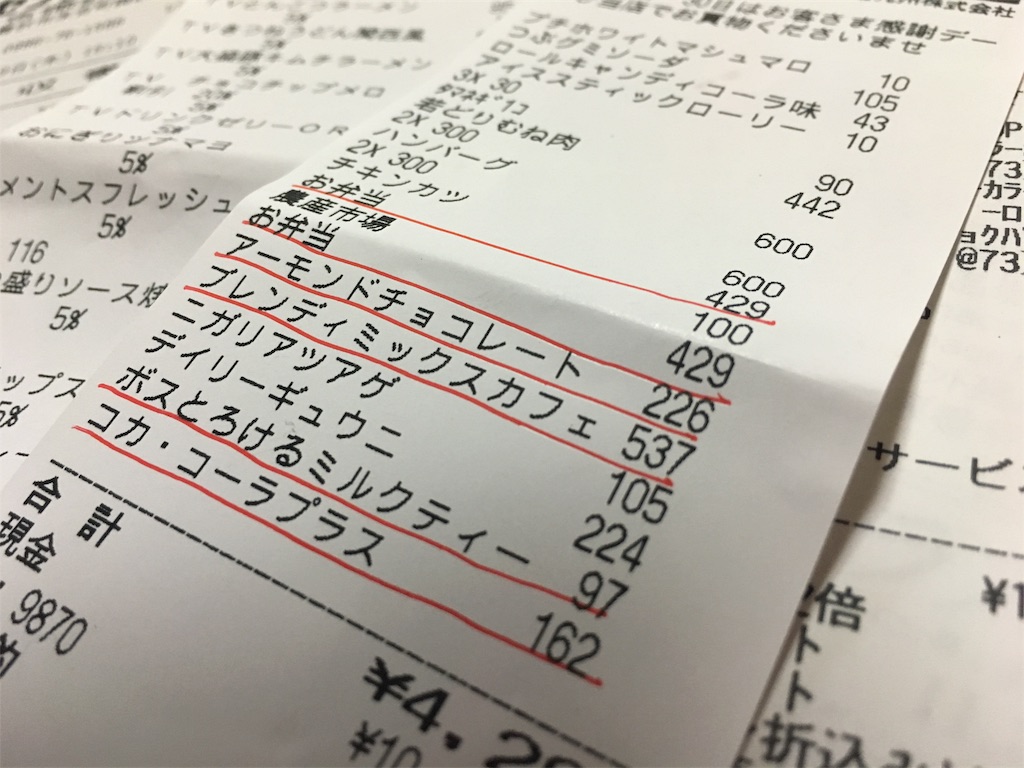 株式会社
日はお客さま感謝デー
当店でお買物くださいませ
プチホワイトマシュマロ 10
つぶグミソーダ 105
ロールキャンディコーラ味 43
アイススティックローリー 10
3X 30
タマネギ1コ 90
若どりむね肉 442
2X 300
ハンバーグ 600
2X 300
チキンカツ 600
お弁当 429
農産市場 100
お弁当 429
アーモンドチョコレート 226
ブレンディミックスカフェ 537
ニガリアツアゲ 105
デイリーギュウニ 224
ボスとろけるミルクティー 97
コカ・コーラプラス 162
合計
現金
¥4,2
¥10
9870
TVドリンクゼリーOR
おにぎりツナマヨ
5%
メントスフレッシュ
5%
116
盛りソース焼
5%
ップス
5%
カラ
@73
サービ
倍
ト
ト
折込み
¥1